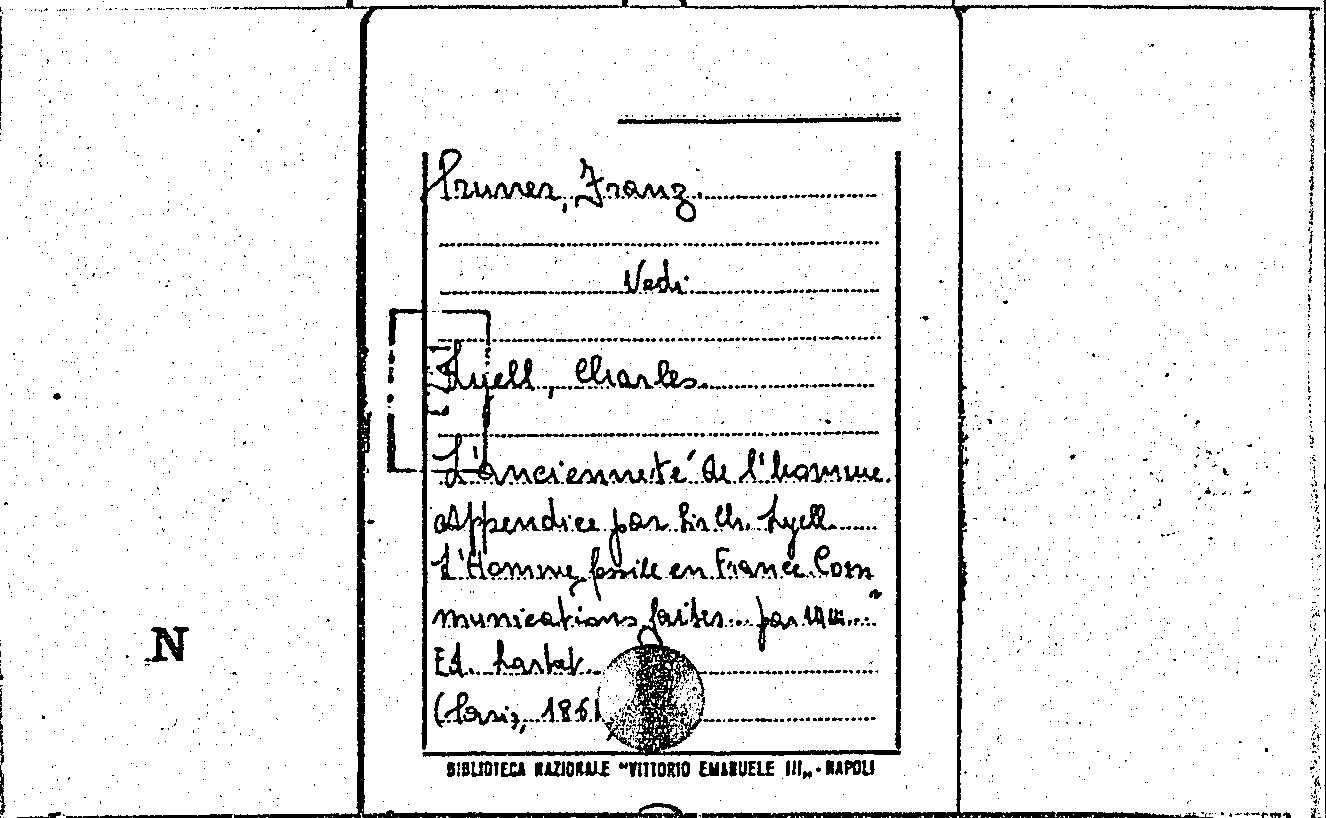 Pruner, Franz.
Vedi
Lyell, Charles.
L'ancienneté de l'homme.
Appendice par Sir Ch. Lyell.
L'Homme fossile en France Com
munications faites... par MM...
Ed. Lartet.
(Paris, 186
N
BIBLIOTECA NAZIONALE "VITTORIO EMANUELE III„ - NAPOLI